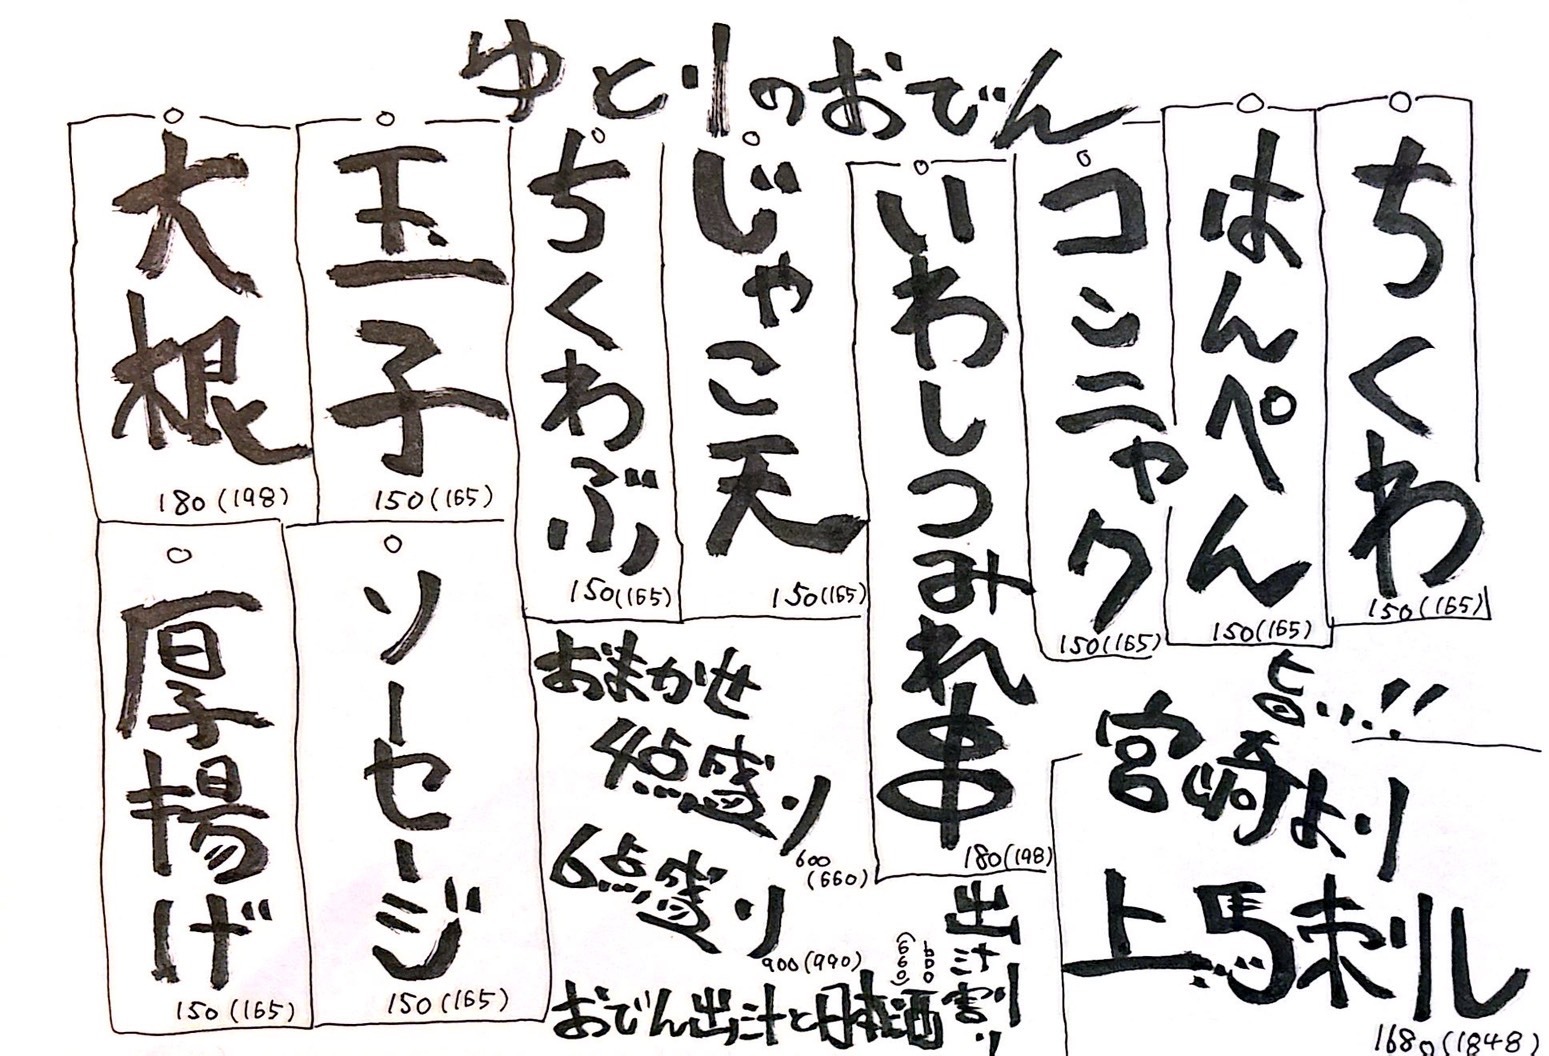 ゆとりのおでん
ちくわ
150(165)
はんぺん
150(165)
コンニャク
150(165)
いわしつみれ串
180(198)
じゃこ天
150(165)
ちくわぶ
150(165)
玉子
150(165)
大根
180(198)
旨い..!!
宮崎より
上馬刺し
1680(1848)
おまかせ
4点盛り
600
(660)
6点盛り
900(990)
ソーセージ
150(165)
厚揚げ
150(165)
出汁割り
600
(660)
おでん出汁と日本酒